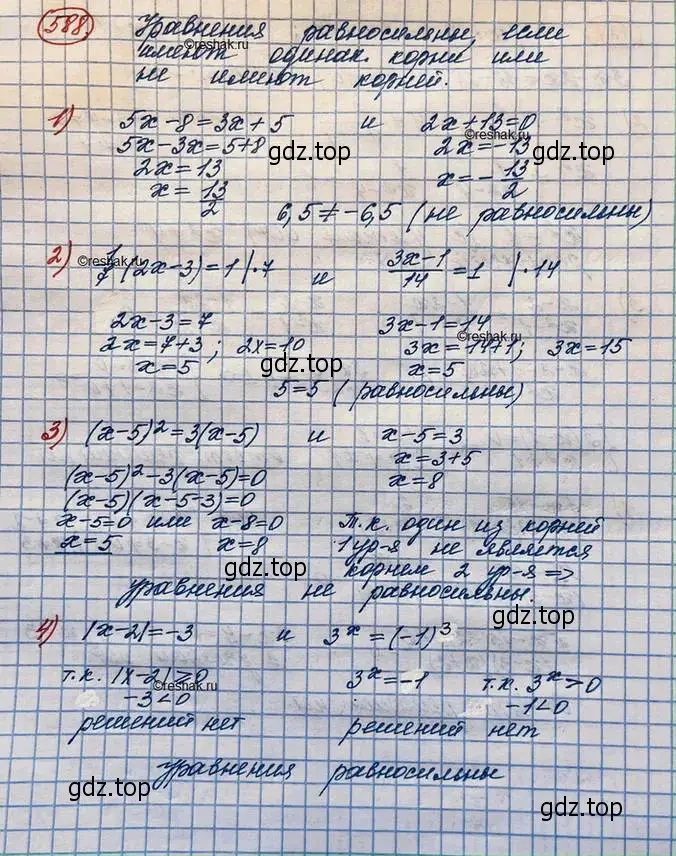 588 Уравнения равносильны, если
имеют одинак. корни или
не имеют корней.
©reshak.ru
1) 5x-8=3x+5 и 2x+13=0
©reshak.ru
5x-3x=5+8 2x=-13
gdz.top
2x=13 x=-13/2
gdz.top
x=13/2
6,5≠-6,5 (не равносильны)
2) 1/7(2x-3)=1 |·7 и (3x-1)/14=1 |·14
©reshak.ru
2x-3=7 3x-1=14
©reshak.ru
2x=7+3; 2x=10 3x=14+1; 3x=15
x=5 x=5
gdz.top
5=5 (равносильны)
gdz.top
3) (x-5)²=3(x-5) и x-5=3
x=3+5
(x-5)²-3(x-5)=0 x=8
(x-5)(x-5-3)=0
x-5=0 или x-8=0 Т.к. один из корней
x=5 x=8 1 ур-я не является
gdz.top
корнем 2 ур-я =>
уравнения не равносильны.
gdz.top
4) |x-2|=-3 и 3ˣ=(-1)³
т.к. |x-2|≥0 3ˣ=-1 т.к. 3ˣ>0
©reshak.ru
-3<0 -1<0
решений нет решений нет
уравнения равносильны
gdz.top
gdz.top